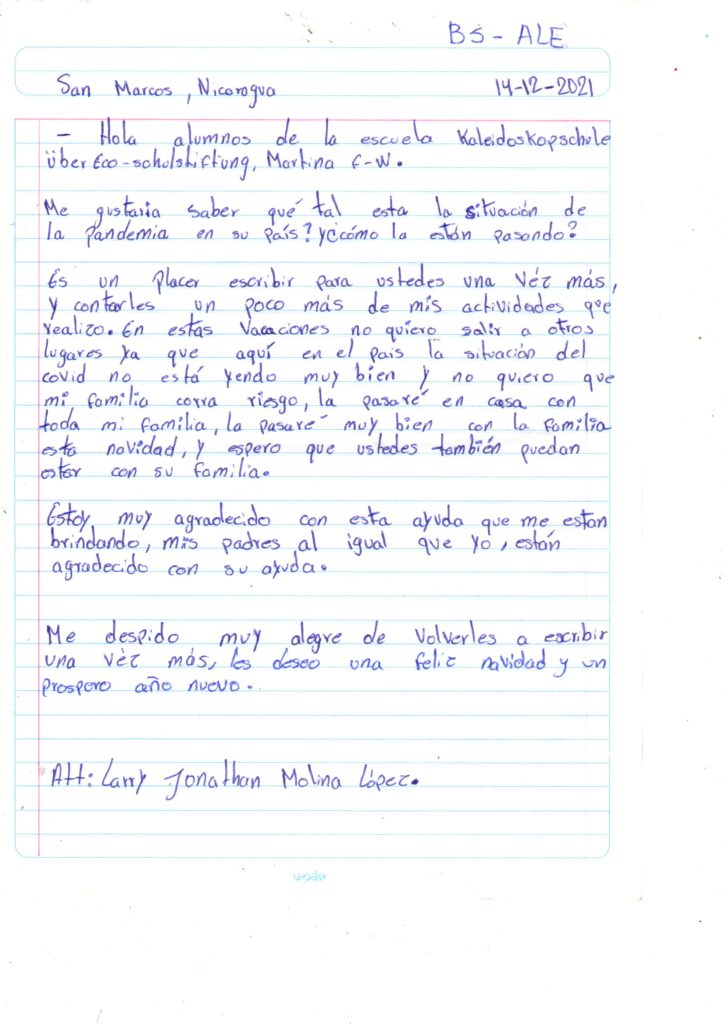 BS - ALE
San Marcos, Nicaragua 14-12-2021
- Hola alumnos de la escuela Kaleidoskopschule
über Eco-schulstiftung, Martina F-W.
Me gustaria saber qué tal esta la situación de
la pandemia en su país? y ¿cómo la están pasando?
Es un placer escribir para ustedes una véz más,
y contarles un poco más de mis actividades que
realizo. En estas vacaciones no quiero salir a otros
lugares ya que aquí en el pais la situación del
covid no está yendo muy bien y no quiero que
mi familia corra riesgo, la pasaré en casa con
toda mi familia, la pasaré muy bien con la familia
esta navidad, y espero que ustedes también puedan
estar con su familia.
Estoy muy agradecido con esta ayuda que me estan
brindando, mis padres al igual que yo, están
agradecido con su ayuda.
Me despido muy alegre de volverles a escribir
una véz más, les deseo una feliz navidad y un
prospero año nuevo.
Att: Larry Jonathan Molina López.